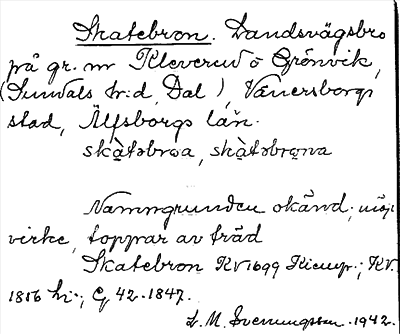 Skatebron. Landsvägsbro
på gr. m Kleverud o Grönvik,
(Sundals h:d, Dal), Vänersborgs
stad, Älfsborgs län.
skàtəbroa, skàtəbrona
Namngrunden okänd;
virke, toppar av träd
Skatebron KV 1699 Kiemp.; KV.
1856 hi; G 42. 1847.
L. M. Svenungsson. 1942.